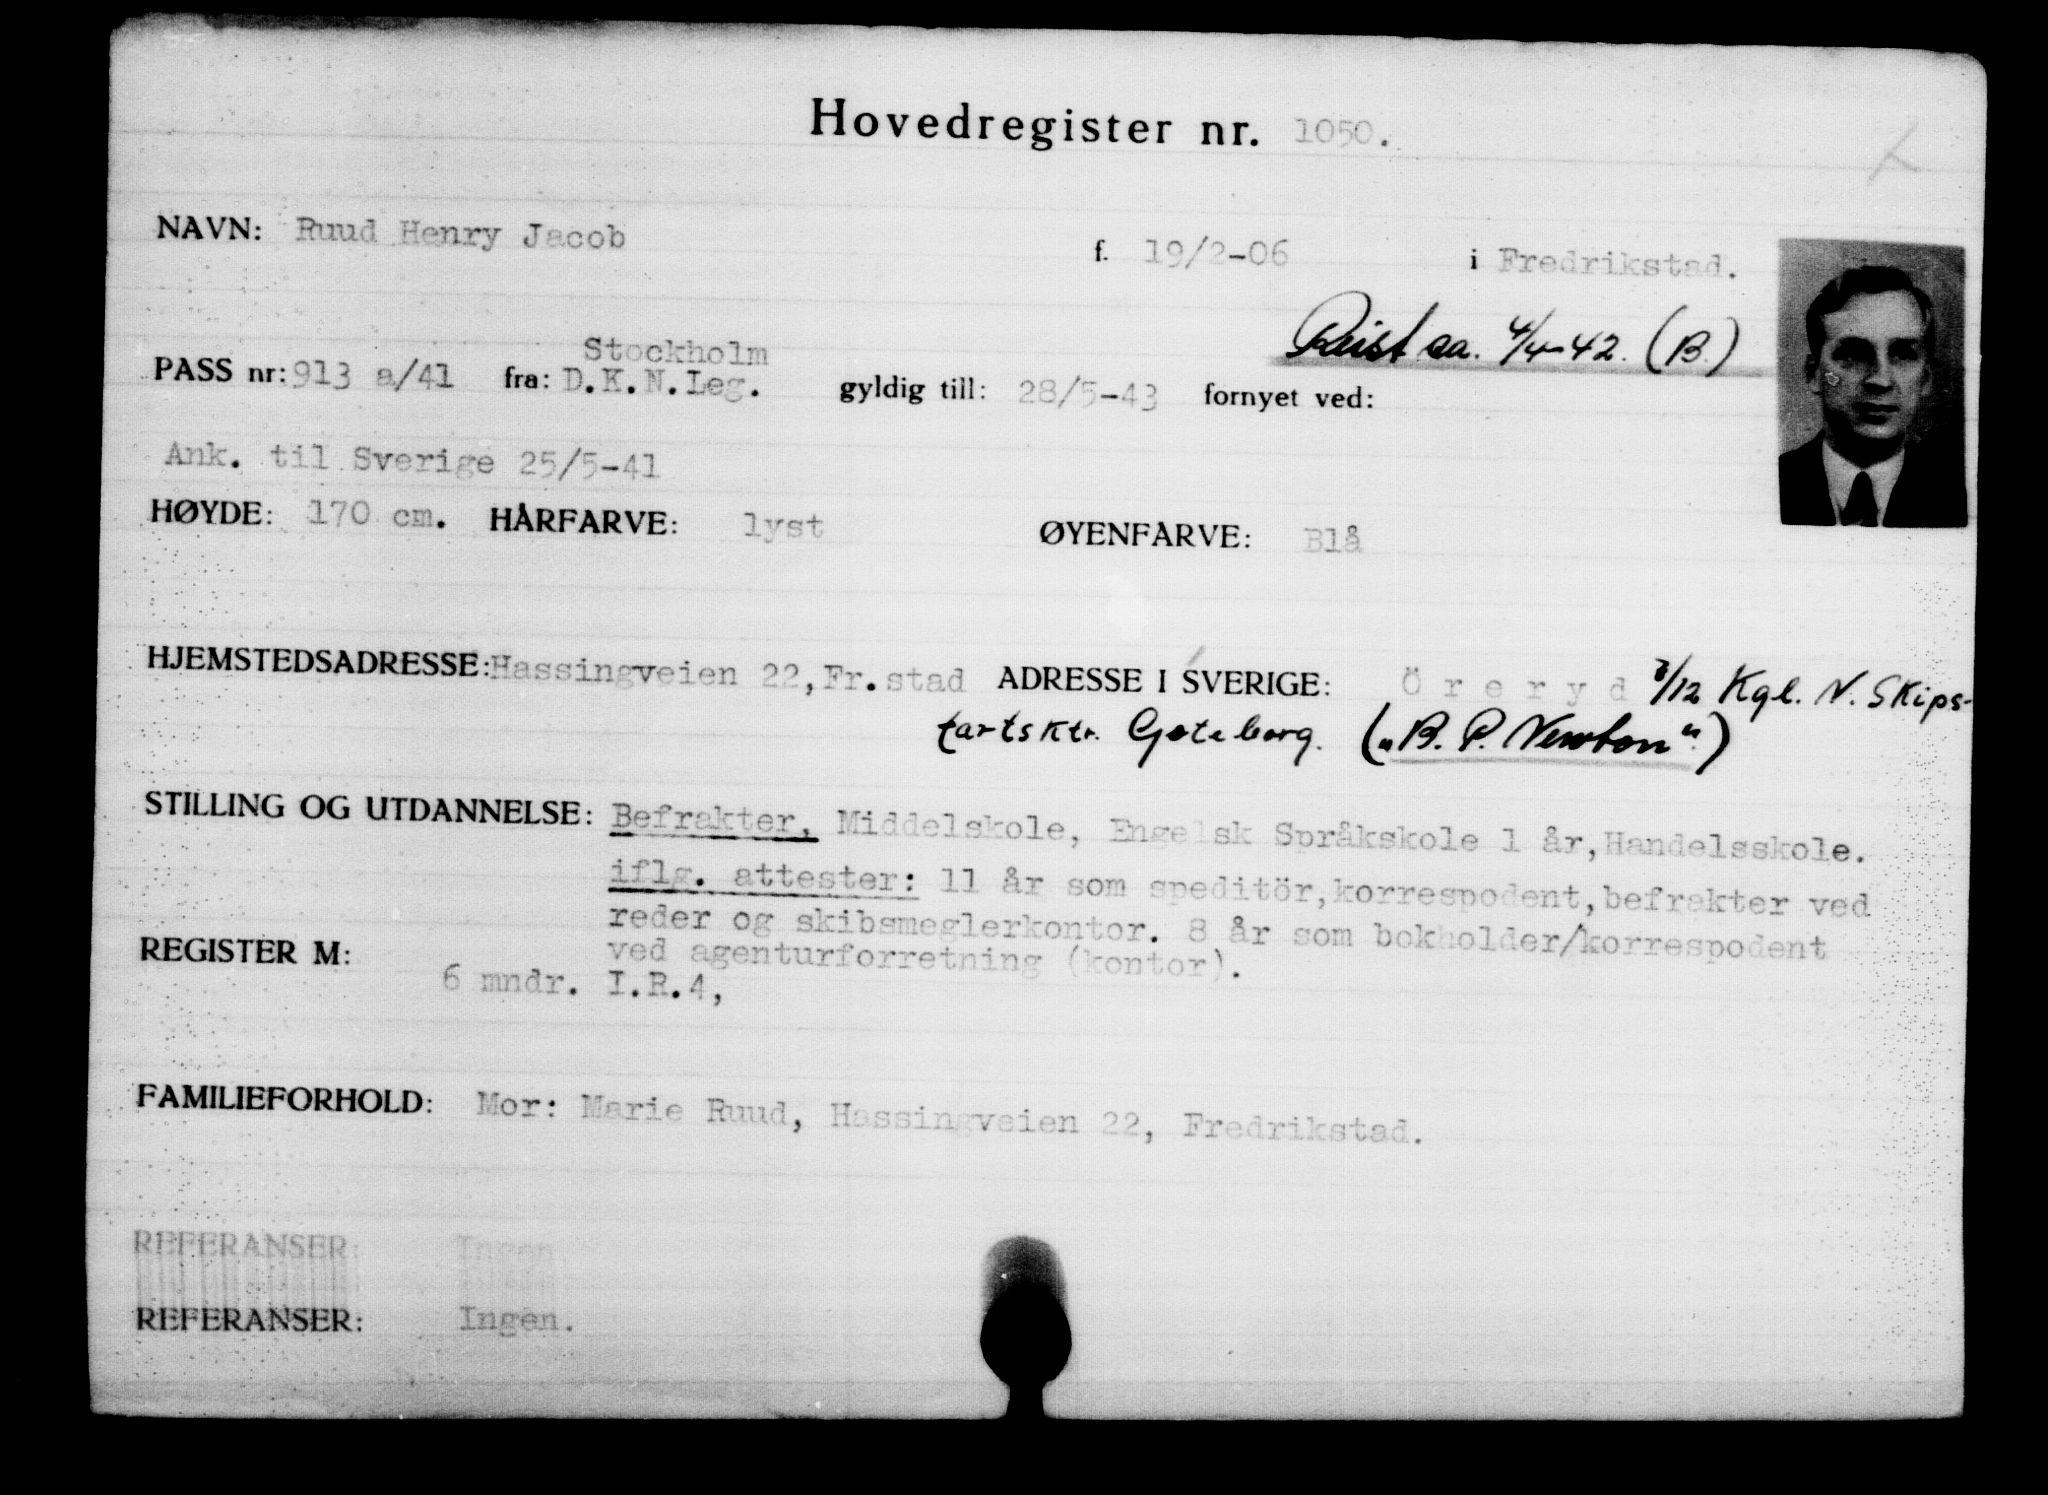 Hovedregister nr. 1050.
NAVN: Ruud Henry Jacob f. 19/2-06 i Fredrikstad.
Reist ca. 4/4-42. (B.)
Stockholm
PASS nr: 913 a/41 fra: D.K.N.Leg. gyldig till: 28/5-43 fornyet ved:
Ank. til Sverige 25/5-41
HØYDE: 170 cm. HÅRFARVE: lyst ØYENFARVE: Blå
HJEMSTEDSADRESSE: Hassingveien 22, Fr.stad ADRESSE I SVERIGE: Öreryd /12 Kgl. N. Skips-
fartsktr. Göteborg. („B. P. Newton“)
STILLING OG UTDANNELSE: Befrakter, Middelskole, Engelsk Språkskole 1 år, Handelsskole.
iflg. attester: 11 år som speditör, korrespodent, befrakter ved
reder og skibsmeglerkontor. 8 år som bokholder/korrespodent
ved agenturforretning (kontor).
REGISTER M:
6 mndr. I.R.4,
FAMILIEFORHOLD: Mor: Marie Ruud, Hassingveien 22, Fredrikstad.
REFERANSER: Ingen
REFERANSER: Ingen.